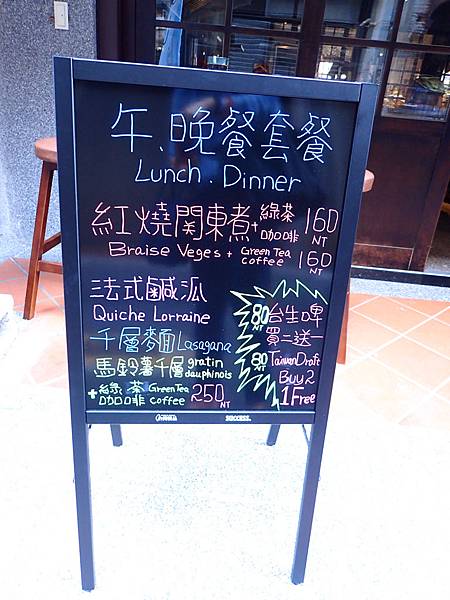 午、晚餐套餐
Lunch . Dinner
紅燒關東煮+綠茶咖啡 160 NT
Braise Veges + Green Tea coffee 160 NT
法式鹹派
Quiche Lorraine
千層麵 Lasagana
馬鈴薯千層 gratin dauphinois
+綠茶咖啡 Green Tea Coffee 250 NT
80 NT 台生啤
買二送一
80 NT Taiwan Draft
Buy 2
1 Free
SUCCESS.